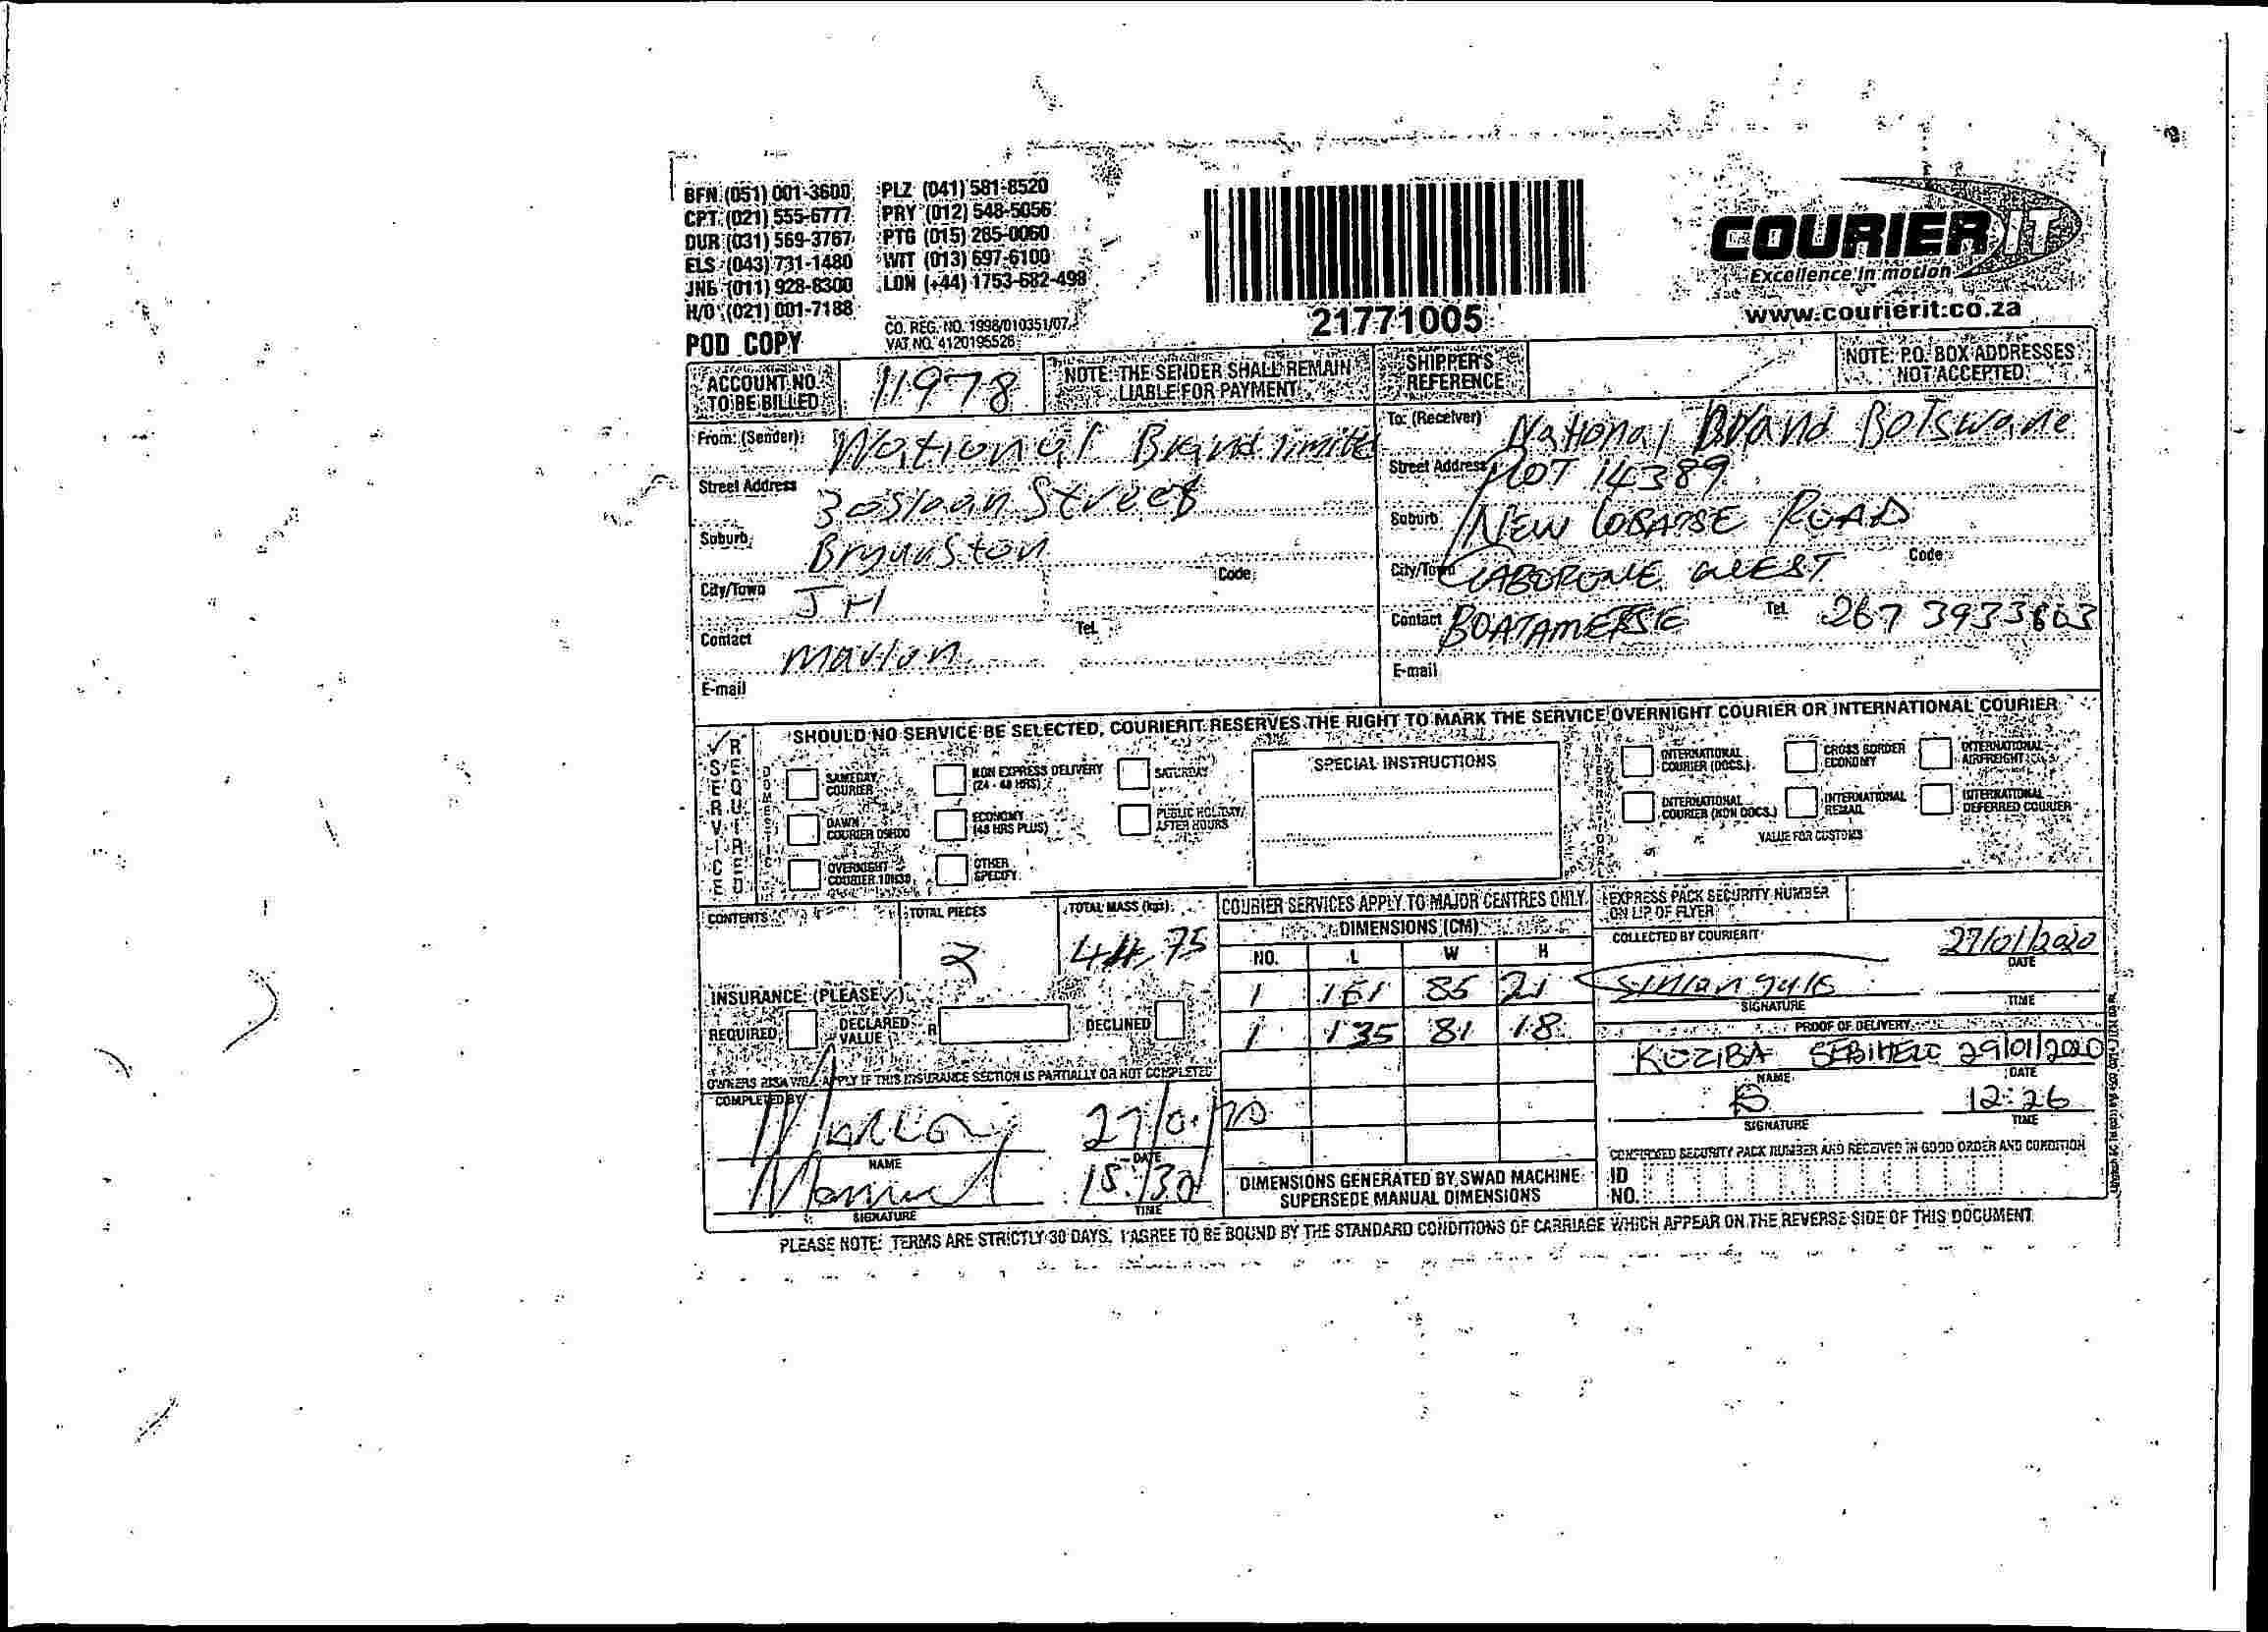 BFN (051) 001-3600 PLZ (041) 581-8520
CPT (021) 555-6777 PRY (012) 548-5056
DUR (031) 569-3767 PTG (015) 285-0060
ELS (043) 731-1480 WIT (013) 697-6100
JNB (011) 928-8300 LON (+44) 1753-682-498
H/O (021) 001-7188
CO. REG. NO. 1998/010351/07
POD COPY VAT NO. 4120195526
21771005
COURIER IT
Excellence in motion
www.courierit.co.za
ACCOUNT NO. TO BE BILLED 11978
NOTE: THE SENDER SHALL REMAIN LIABLE FOR PAYMENT
SHIPPER'S REFERENCE
NOTE: P.O. BOX ADDRESSES NOT ACCEPTED
From: (Sender) National Brand limite
Street Address 30 Sloan Street
Suburb Bryanston
City/Town JH Code
Contact Marlon Tel.
E-mail
To: (Receiver) National Brand Botswane
Street Address PLOT 14389
Suburb NEW LOBATSE ROAD
City/Town GABORONE WEST Code
Contact Tel. 267 3933863
E-mail
SHOULD NO SERVICE BE SELECTED, COURIERIT RESERVES THE RIGHT TO MARK THE SERVICE OVERNIGHT COURIER OR INTERNATIONAL COURIER
SERVICE REQUIRED
DOMESTIC
SAMEDAY COURIER
DAWN COURIER 09H00
OVERNIGHT COURIER 10H30
NON EXPRESS DELIVERY (24 - 48 HRS)
ECONOMY (48 HRS PLUS)
OTHER SPECIFY
SATURDAY
PUBLIC HOLIDAY/ AFTER HOURS
SPECIAL INSTRUCTIONS
INTERNATIONAL COURIER (DOCS.)
INTERNATIONAL COURIER (NON DOCS.)
CROSS BORDER ECONOMY
INTERNATIONAL REMAIL
INTERNATIONAL AIRFREIGHT
INTERNATIONAL DEFERRED COURIER
VALUE FOR CUSTOMS
CONTENTS
TOTAL PIECES 2
TOTAL MASS (kgs) 44,75
COURIER SERVICES APPLY TO MAJOR CENTRES ONLY
DIMENSIONS (CM)
NO. L W H
1 161 85 21
1 135 81 18
EXPRESS PACK SECURITY NUMBER
ON LIP OF FLYER
COLLECTED BY COURIERIT 27/01/2020
DATE
SIGNATURE TIME
INSURANCE: (PLEASE ✓)
REQUIRED DECLARED VALUE R DECLINED
OWNERS RISK WILL APPLY IF THIS INSURANCE SECTION IS PARTIALLY OR NOT COMPLETED
COMPLETED BY
NAME DATE
15:30
SIGNATURE TIME
DIMENSIONS GENERATED BY SWAD MACHINE
SUPERSEDE MANUAL DIMENSIONS
PROOF OF DELIVERY
KOZIBA 29/01/2020
NAME DATE
12:26
SIGNATURE TIME
CONFIRMED SECURITY PACK NUMBER AND RECEIVED IN GOOD ORDER AND CONDITION
ID NO.
PLEASE NOTE: TERMS ARE STRICTLY 30 DAYS. I AGREE TO BE BOUND BY THE STANDARD CONDITIONS OF CARRIAGE WHICH APPEAR ON THE REVERSE SIDE OF THIS DOCUMENT